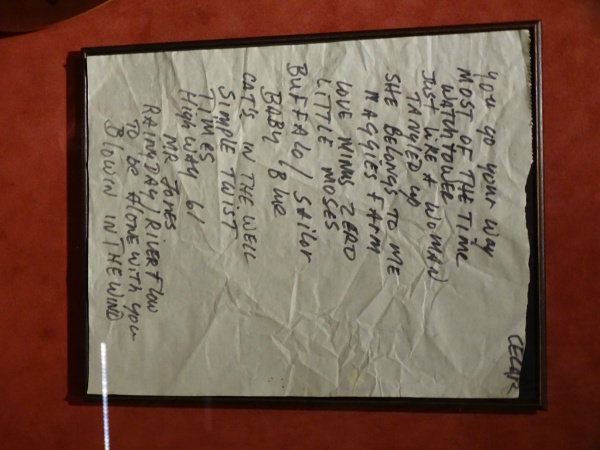 CECAR
you go your way
MOST OF THE TIME
WATCHTOWER
JUST LIKE A WOMAN
TANGLED UP
SHE BELONGS TO ME
MAGGIES FARM
LOVE MINUS ZERO
LITTLE MOSES
BUFFALO / SAILOR
BABY BLUE
CATS IN THE WELL
SIMPLE TWIST
TIMES
HIGHWAY 61
MR JONES
RAINY DAY / RIVER FLOW
TO BE ALONE WITH YOU
BLOWIN IN THE WIND